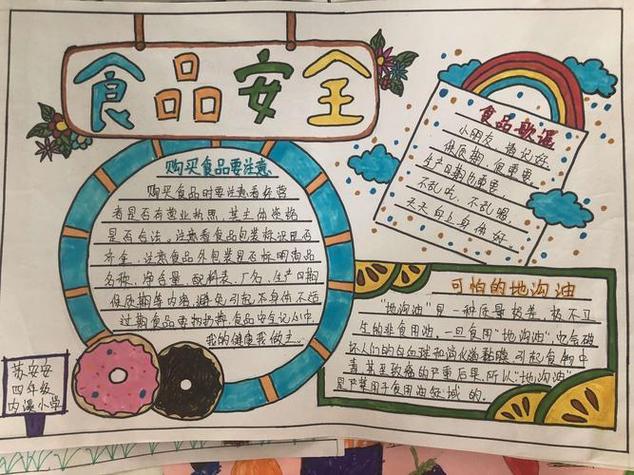 食品安全
购买食品要注意
购买食品时要注意看经营
者是否有营业执照,其主体资格
是否合法。注意看食品包装标识是否
齐全,注意食品外包装是否标明商品
名称、净含量、配料表、厂名、生产日期
保质期等内容,避免引起不
过期食品要扔掉,食品安全记心中,
我的健康我做主。
食品歌谣
小朋友,请记好
保质期,很重要
生产日期也重要
不乱吃,不乱喝
天天向上身体好。
可怕的地沟油
“地沟油”是一种质量极差、极不卫
生的非食用油。一旦食用“地沟油”,它会破
坏人们的白血球和消化道黏膜,引起食物中
毒,甚至致癌的严重后果。所以“地沟油”
是严禁用于食用油领域的。
苏安安
四年级
内溪小学